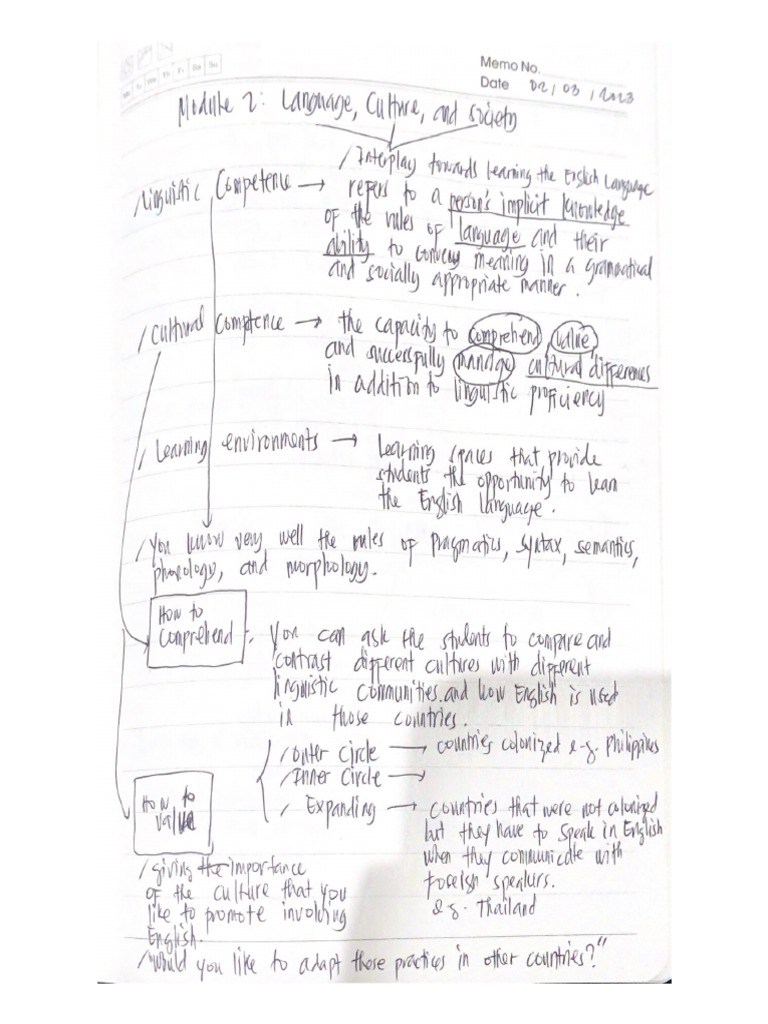 Memo No.
Date 02 / 03 / 2023
Mo Tu We Th Fr Sa Su
Module 2: Language, Culture, and society
/Interplay towards learning the English Language
/Linguistic Competence → refers to a person's implicit knowledge
of the rules of language and their
ability to convey meaning in a grammatical
and socially appropriate manner.
/Cultural Competence → the capacity to comprehend, value,
and successfully manage cultural differences
in addition to linguistic proficiency
/Learning environments → Learning spaces that provide
students the opportunity to lean
the English language.
/You know very well the rules of Pragmatics, Syntax, semantics,
phonology, and morphology.
How to
comprehend
:. You can ask the students to compare and
contrast different cultures with different
linguistic communities. and how English is used
in those countries.
/Outer circle → countries colonized e.g. Philippines
/Inner Circle →
/Expanding → countries that were not colonized
but they have to speak in English
when they communicate with
Foreign speakers.
e.g. Thailand
How to
value
/giving the importance
of the culture that you
like to promote involving
English.
/"Would you like to adapt those practices in other countries?"